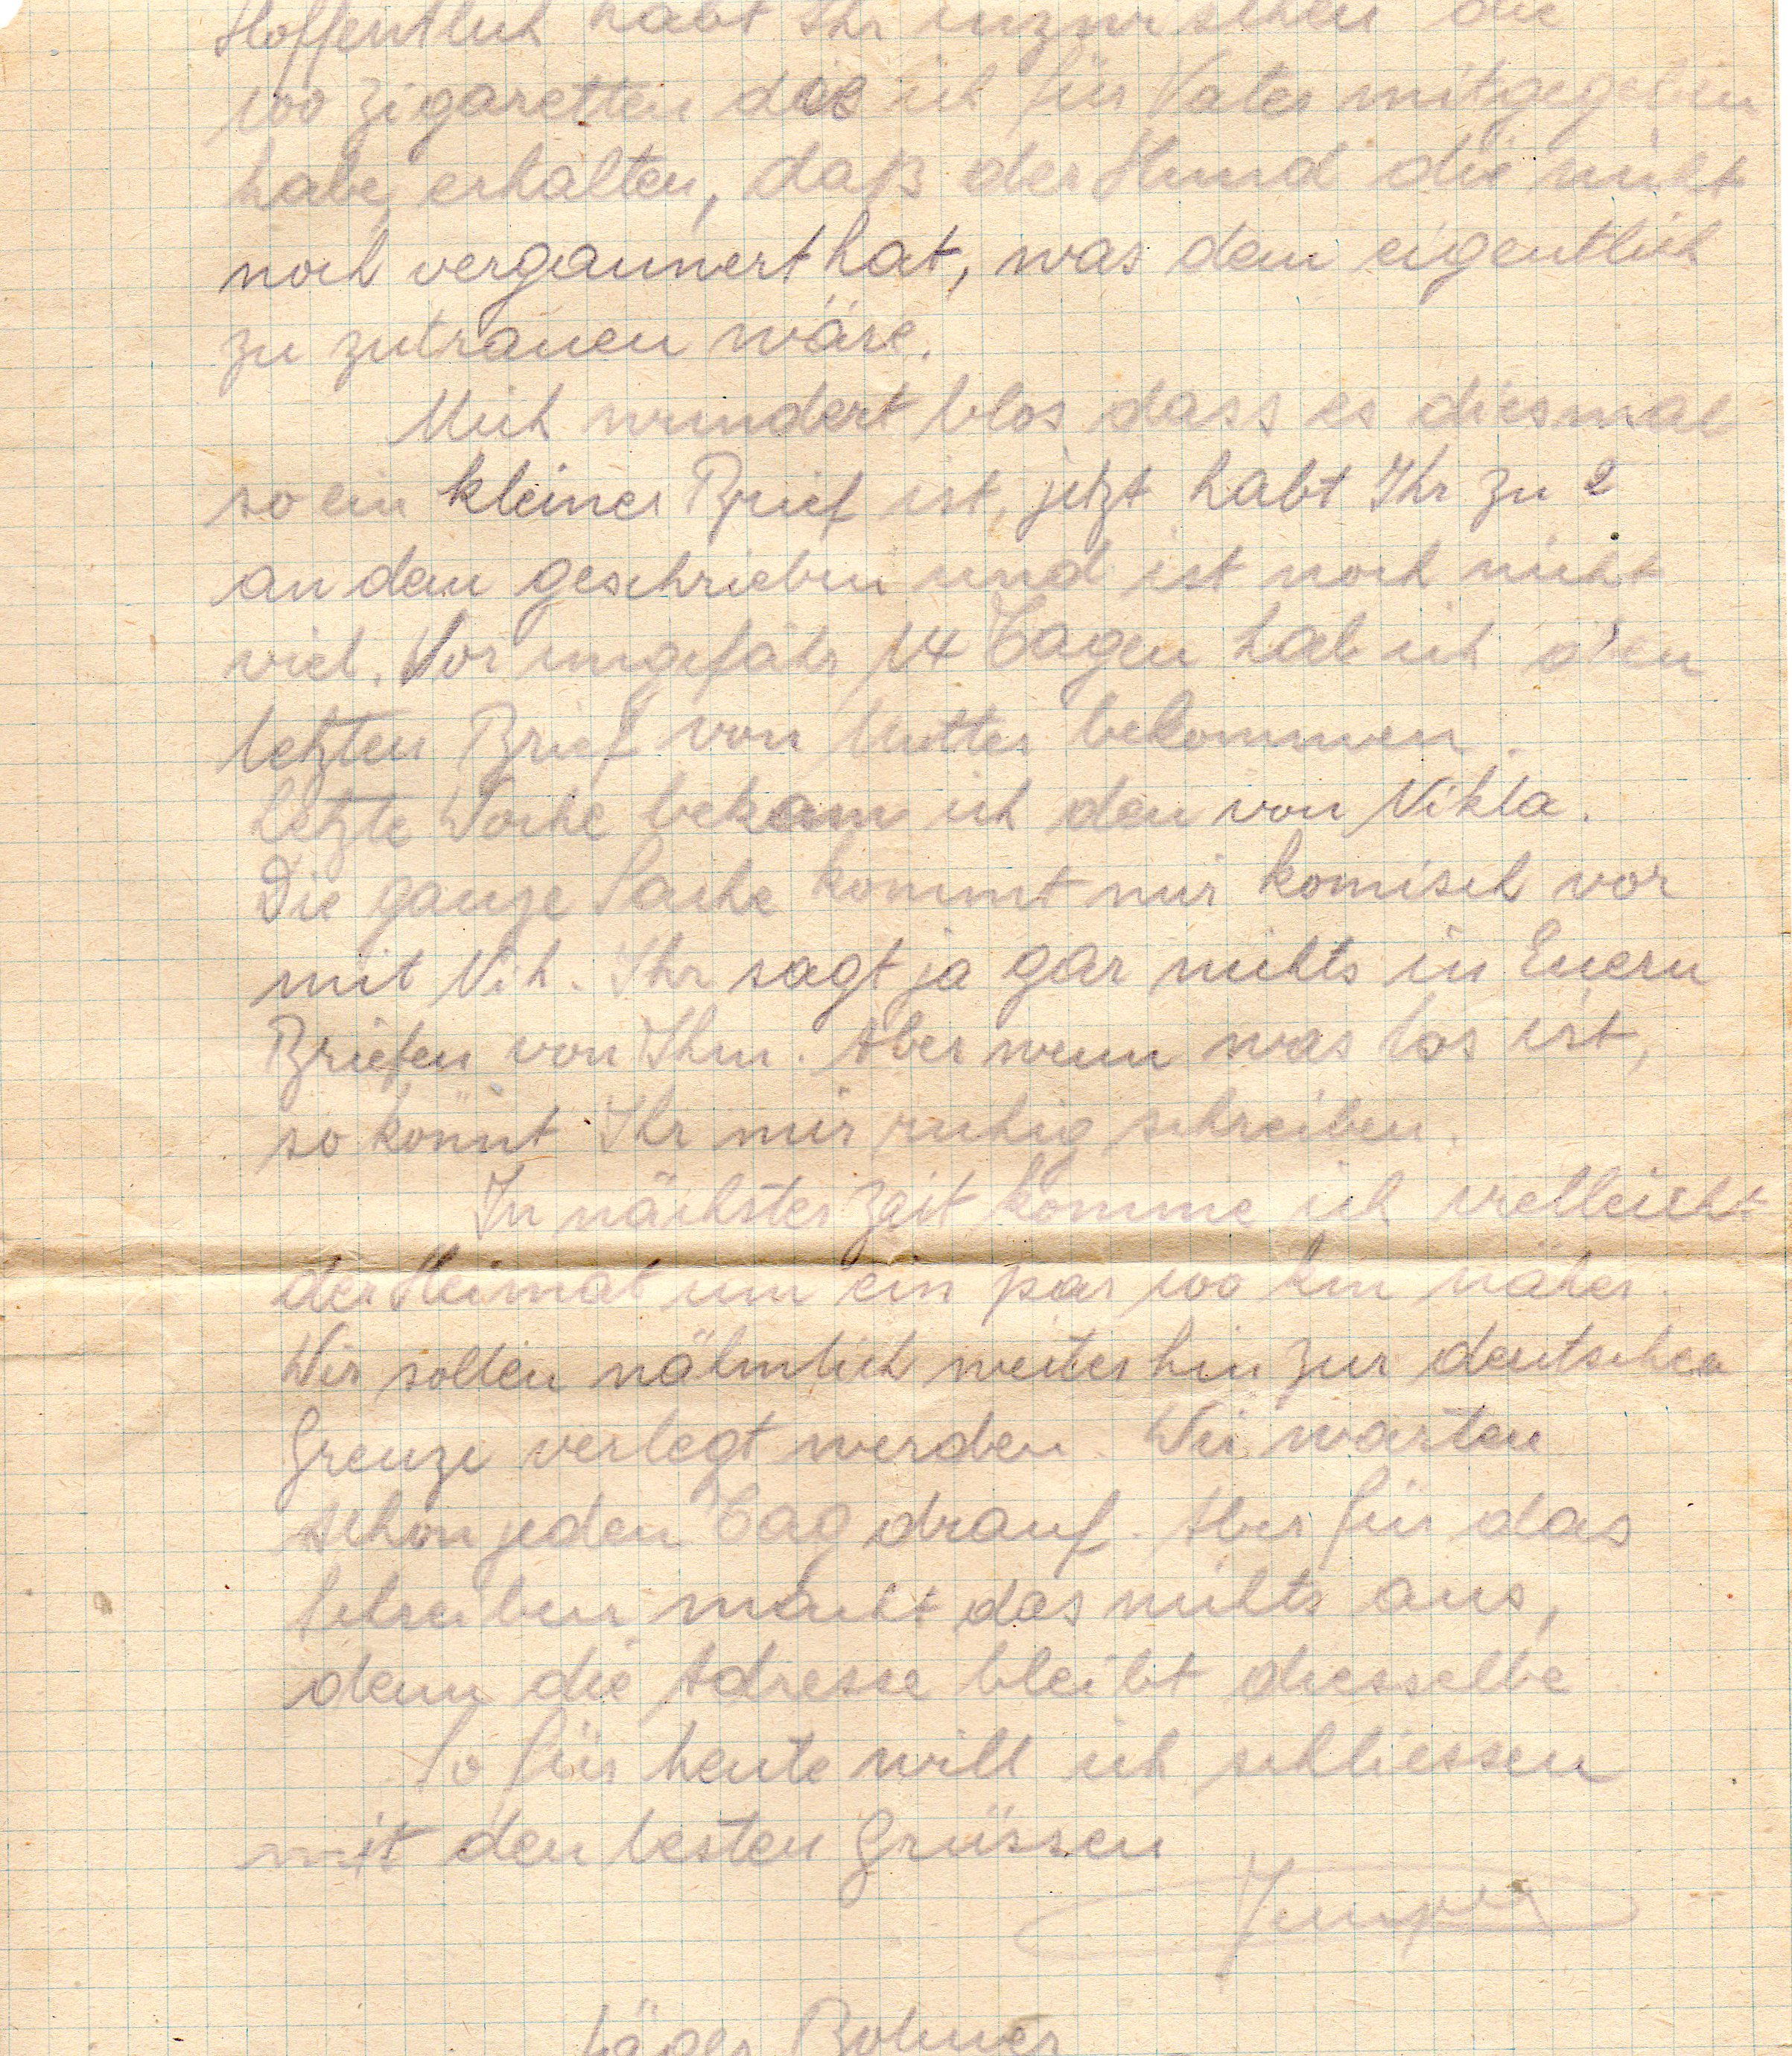 Hoffentlich habt Ihr inzwischen die
100 Zigaretten die ich für Vater mitgegeben
habe erhalten, daß der Hund die nicht
noch vergaunert hat, was dem eigentlich
zu zutrauen wäre.
Mich wundert blos dass es diesmal
so ein kleiner Brief ist, jetzt habt Ihr zu 2
an dem geschrieben und ist noch nicht
viel. Vor ungefähr 14 Tagen hab ich den
letzten Brief von Mutter bekommen.
Letzte Woche bekam ich den von Nikla.
Die ganze Sache kommt mir komisch vor
mit Nik. Ihr sagt ja gar nichts in Euern
Briefen von Ihm. Aber wenn was los ist,
so könnt Ihr mir ruhig schreiben.
In nächster Zeit komme ich vielleicht
der Heimat um ein par 100 km näher.
Wir sollen nähmlich weiter hin zur deutschen
Grenze verlegt werden. Wir warten
schon jeden Tag drauf. Aber für das
Schreiben macht das nichts aus,
denn die Adresse bleibt diesselbe
So für heute will ich schliessen
mit den besten Grüssen